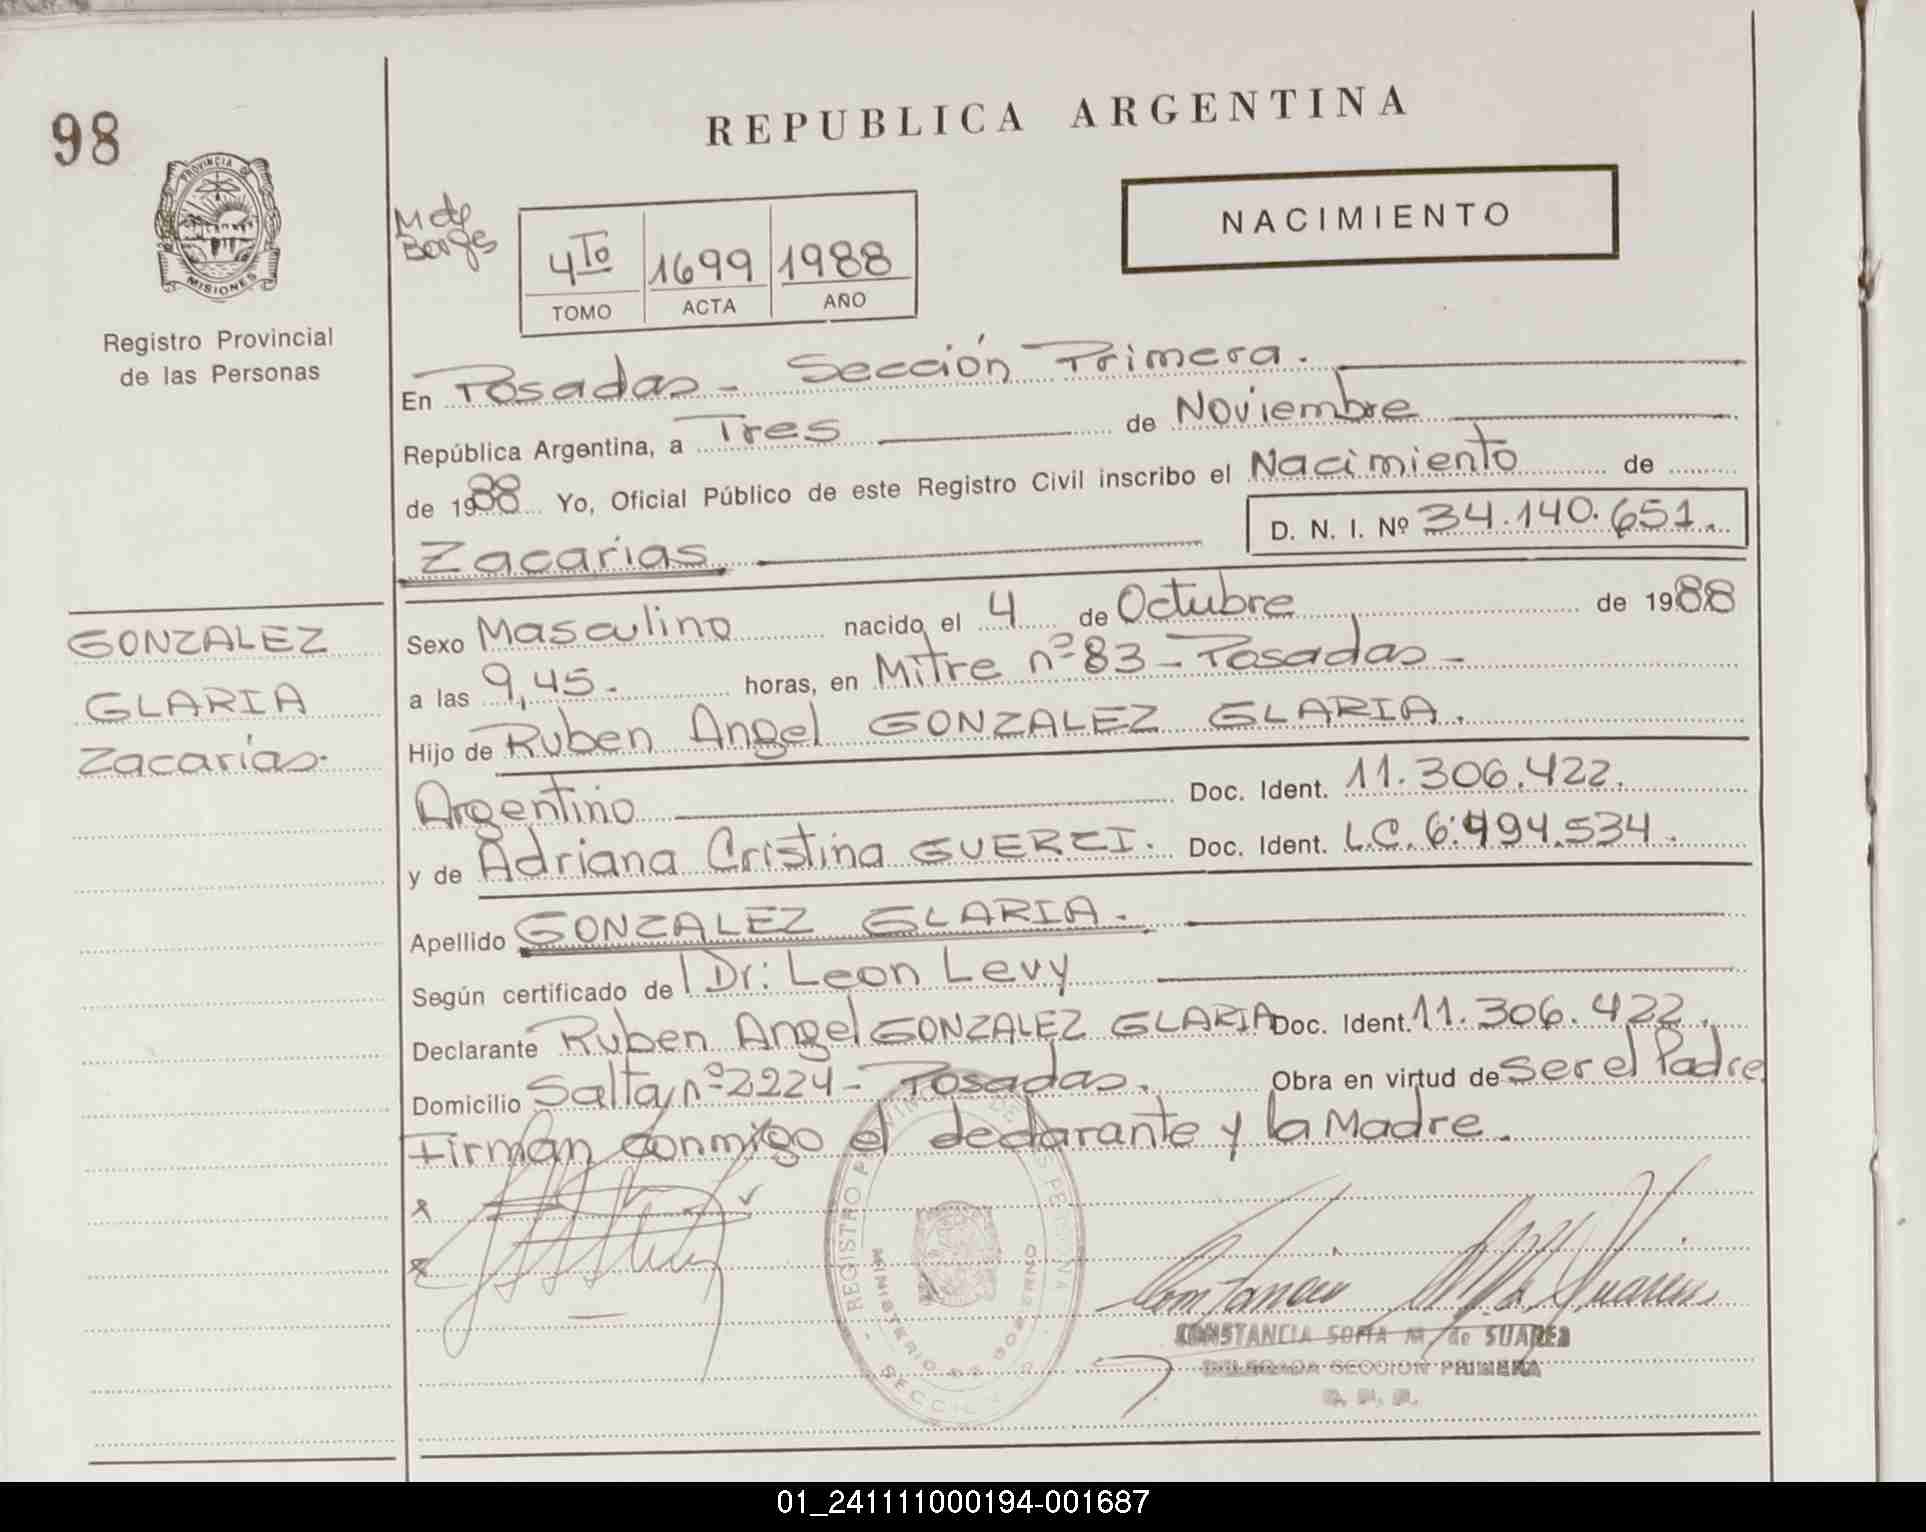 98
REPUBLICA ARGENTINA
PROVINCIA DE
MISIONES
Registro Provincial
de las Personas
M de
NACIMIENTO
4To 1699 1988
TOMO ACTA AÑO
En Posadas - Sección Primera.
República Argentina, a Tres de Noviembre
de 1988 Yo, Oficial Público de este Registro Civil inscribo el Nacimiento de
Zacarías D. N. I. Nº 34.140.651.
GONZALEZ
GLARIA
Zacarías.
Sexo Masculino nacido el 4 de Octubre de 1988
a las 9,45. horas, en Mitre nº 83 - Posadas -
Hijo de Ruben Angel GONZALEZ GLARIA.
Argentino Doc. Ident. 11.306.422.
y de Adriana Cristina Doc. Ident. L.C. 6.494.534.
Apellido GONZALEZ GLARIA.
Según certificado de Dr: Leon Levy
Declarante Ruben Angel GONZALEZ GLARIA Doc. Ident. 11.306.422.
Domicilio Salta nº 2224 - Posadas. Obra en virtud de Ser el Padre
Firman conmigo el declarante y la Madre.
REGISTRO PROVINCIAL DE LAS PERSONAS
MINISTERIO DE GOBIERNO
CONSTANCIA SOFIA M de SUAREZ
DELEGADA SECCION PRIMERA
01_241111000194-001687